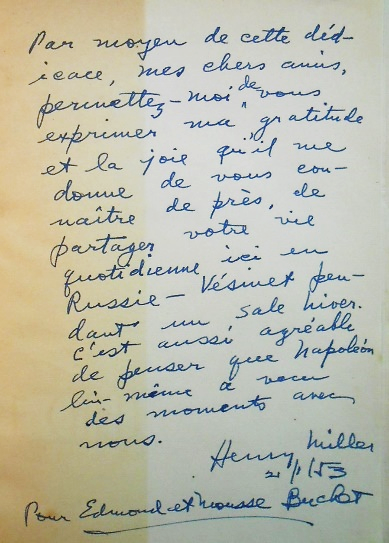 Par moyen de cette déd-
icace, mes chers amis,
permettez-moi de vous
exprimer ma gratitude
et la joie qu'il me
donne de vous con-
naître de près, de
partager votre vie
quotidienne ici en
Russie - Vésinet pen-
dant un sale hiver.
C'est aussi agréable
de penser que Napoléon
lui-même a vécu
des moments avec
nous.
Henry Miller
2/1/53
Pour Edmond et Mousse Buchet